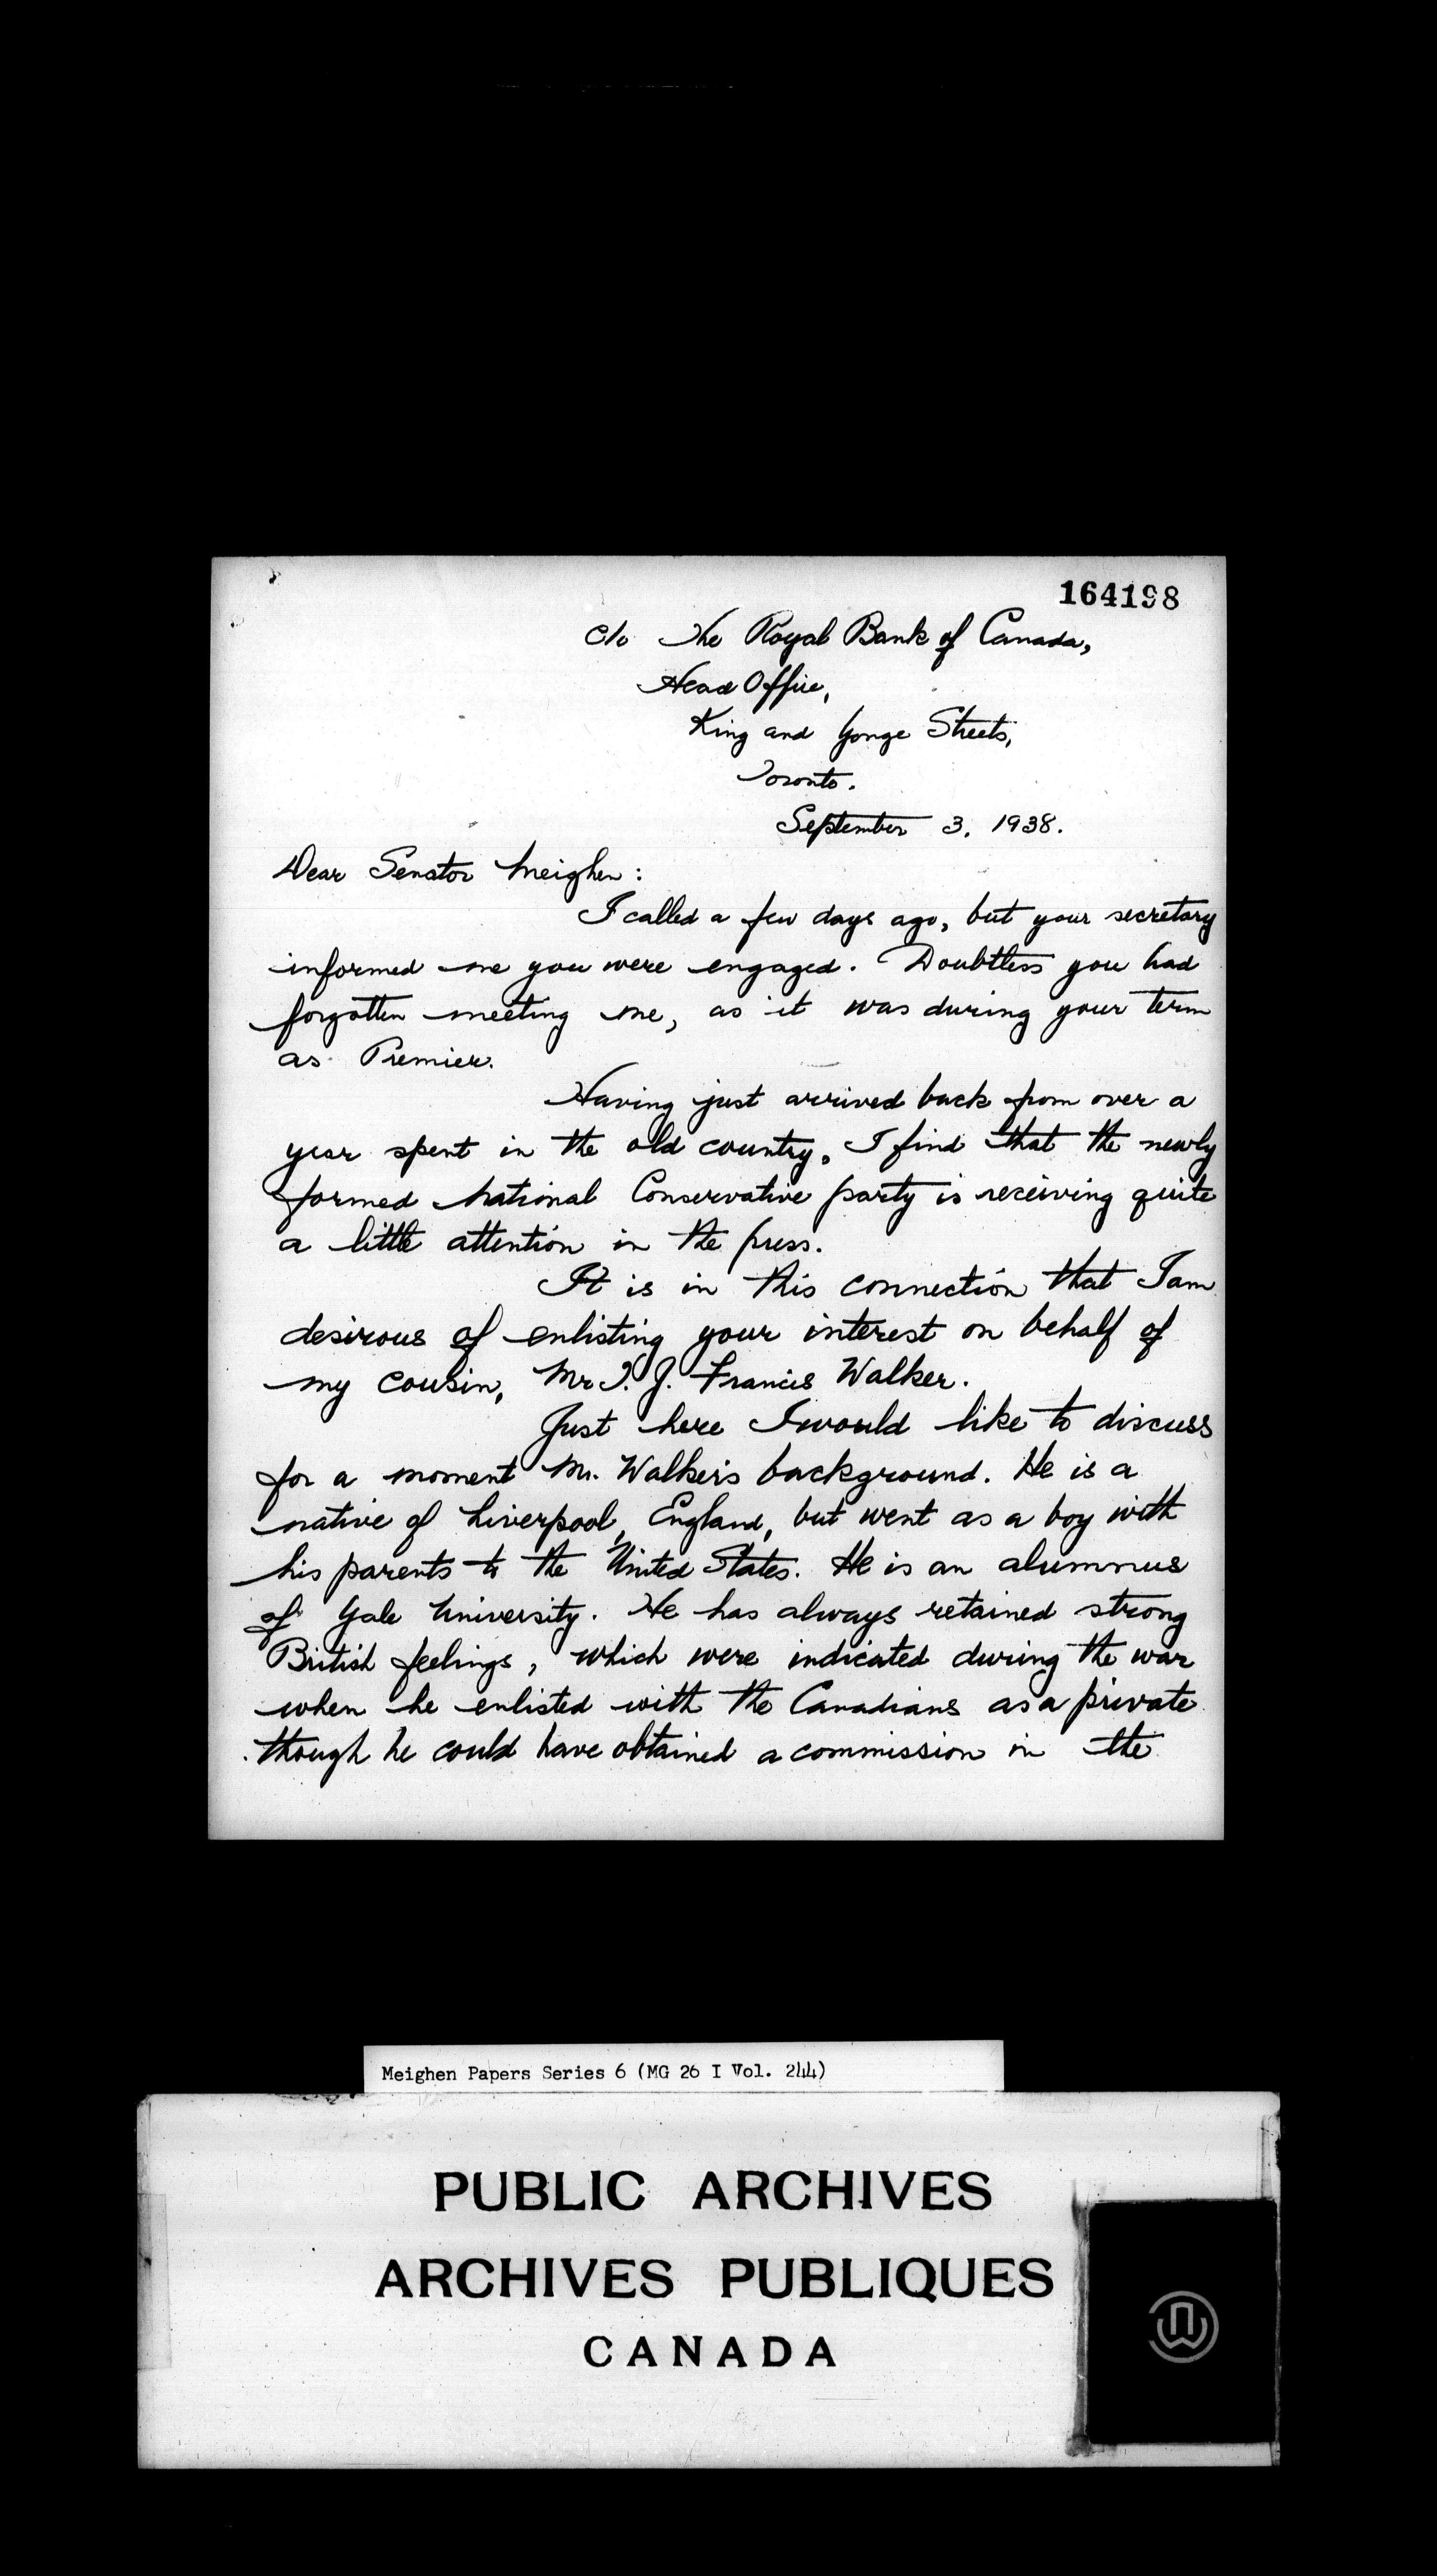 164198
c/o The Royal Bank of Canada,
Head Office,
King and Yonge Streets,
Toronto.
September 3, 1938.
Dear Senator Meighen:
I called a few days ago, but your secretary
informed me you were engaged. Doubtless you had
forgotten meeting me, as it was during your term
as Premier.
Having just arrived back from over a
year spent in the old country, I find that the newly
formed National Conservative party is receiving quite
a little attention in the press.
It is in this connection that I am
desirous of enlisting your interest on behalf of
my cousin, Mr. J. Francis Walker.
Just here I would like to discuss
for a moment Mr. Walker's background. He is a
native of Liverpool, England, but went as a boy with
his parents to the United States. He is an alumnus
of Yale University. He has always retained strong
British feelings, which were indicated during the war
when he enlisted with the Canadians as a private
though he could have obtained a commission in the
Meighen Papers Series 6 (MG 26 I Vol. 244)
PUBLIC ARCHIVES
ARCHIVES PUBLIQUES
CANADA